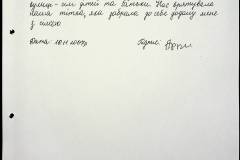 вулиця - сім дітей та батьки. Нас врятувала
наша тітка, яка забрала до себе додому мене
з сімєю
Дата 10.11.2007р. Підпис